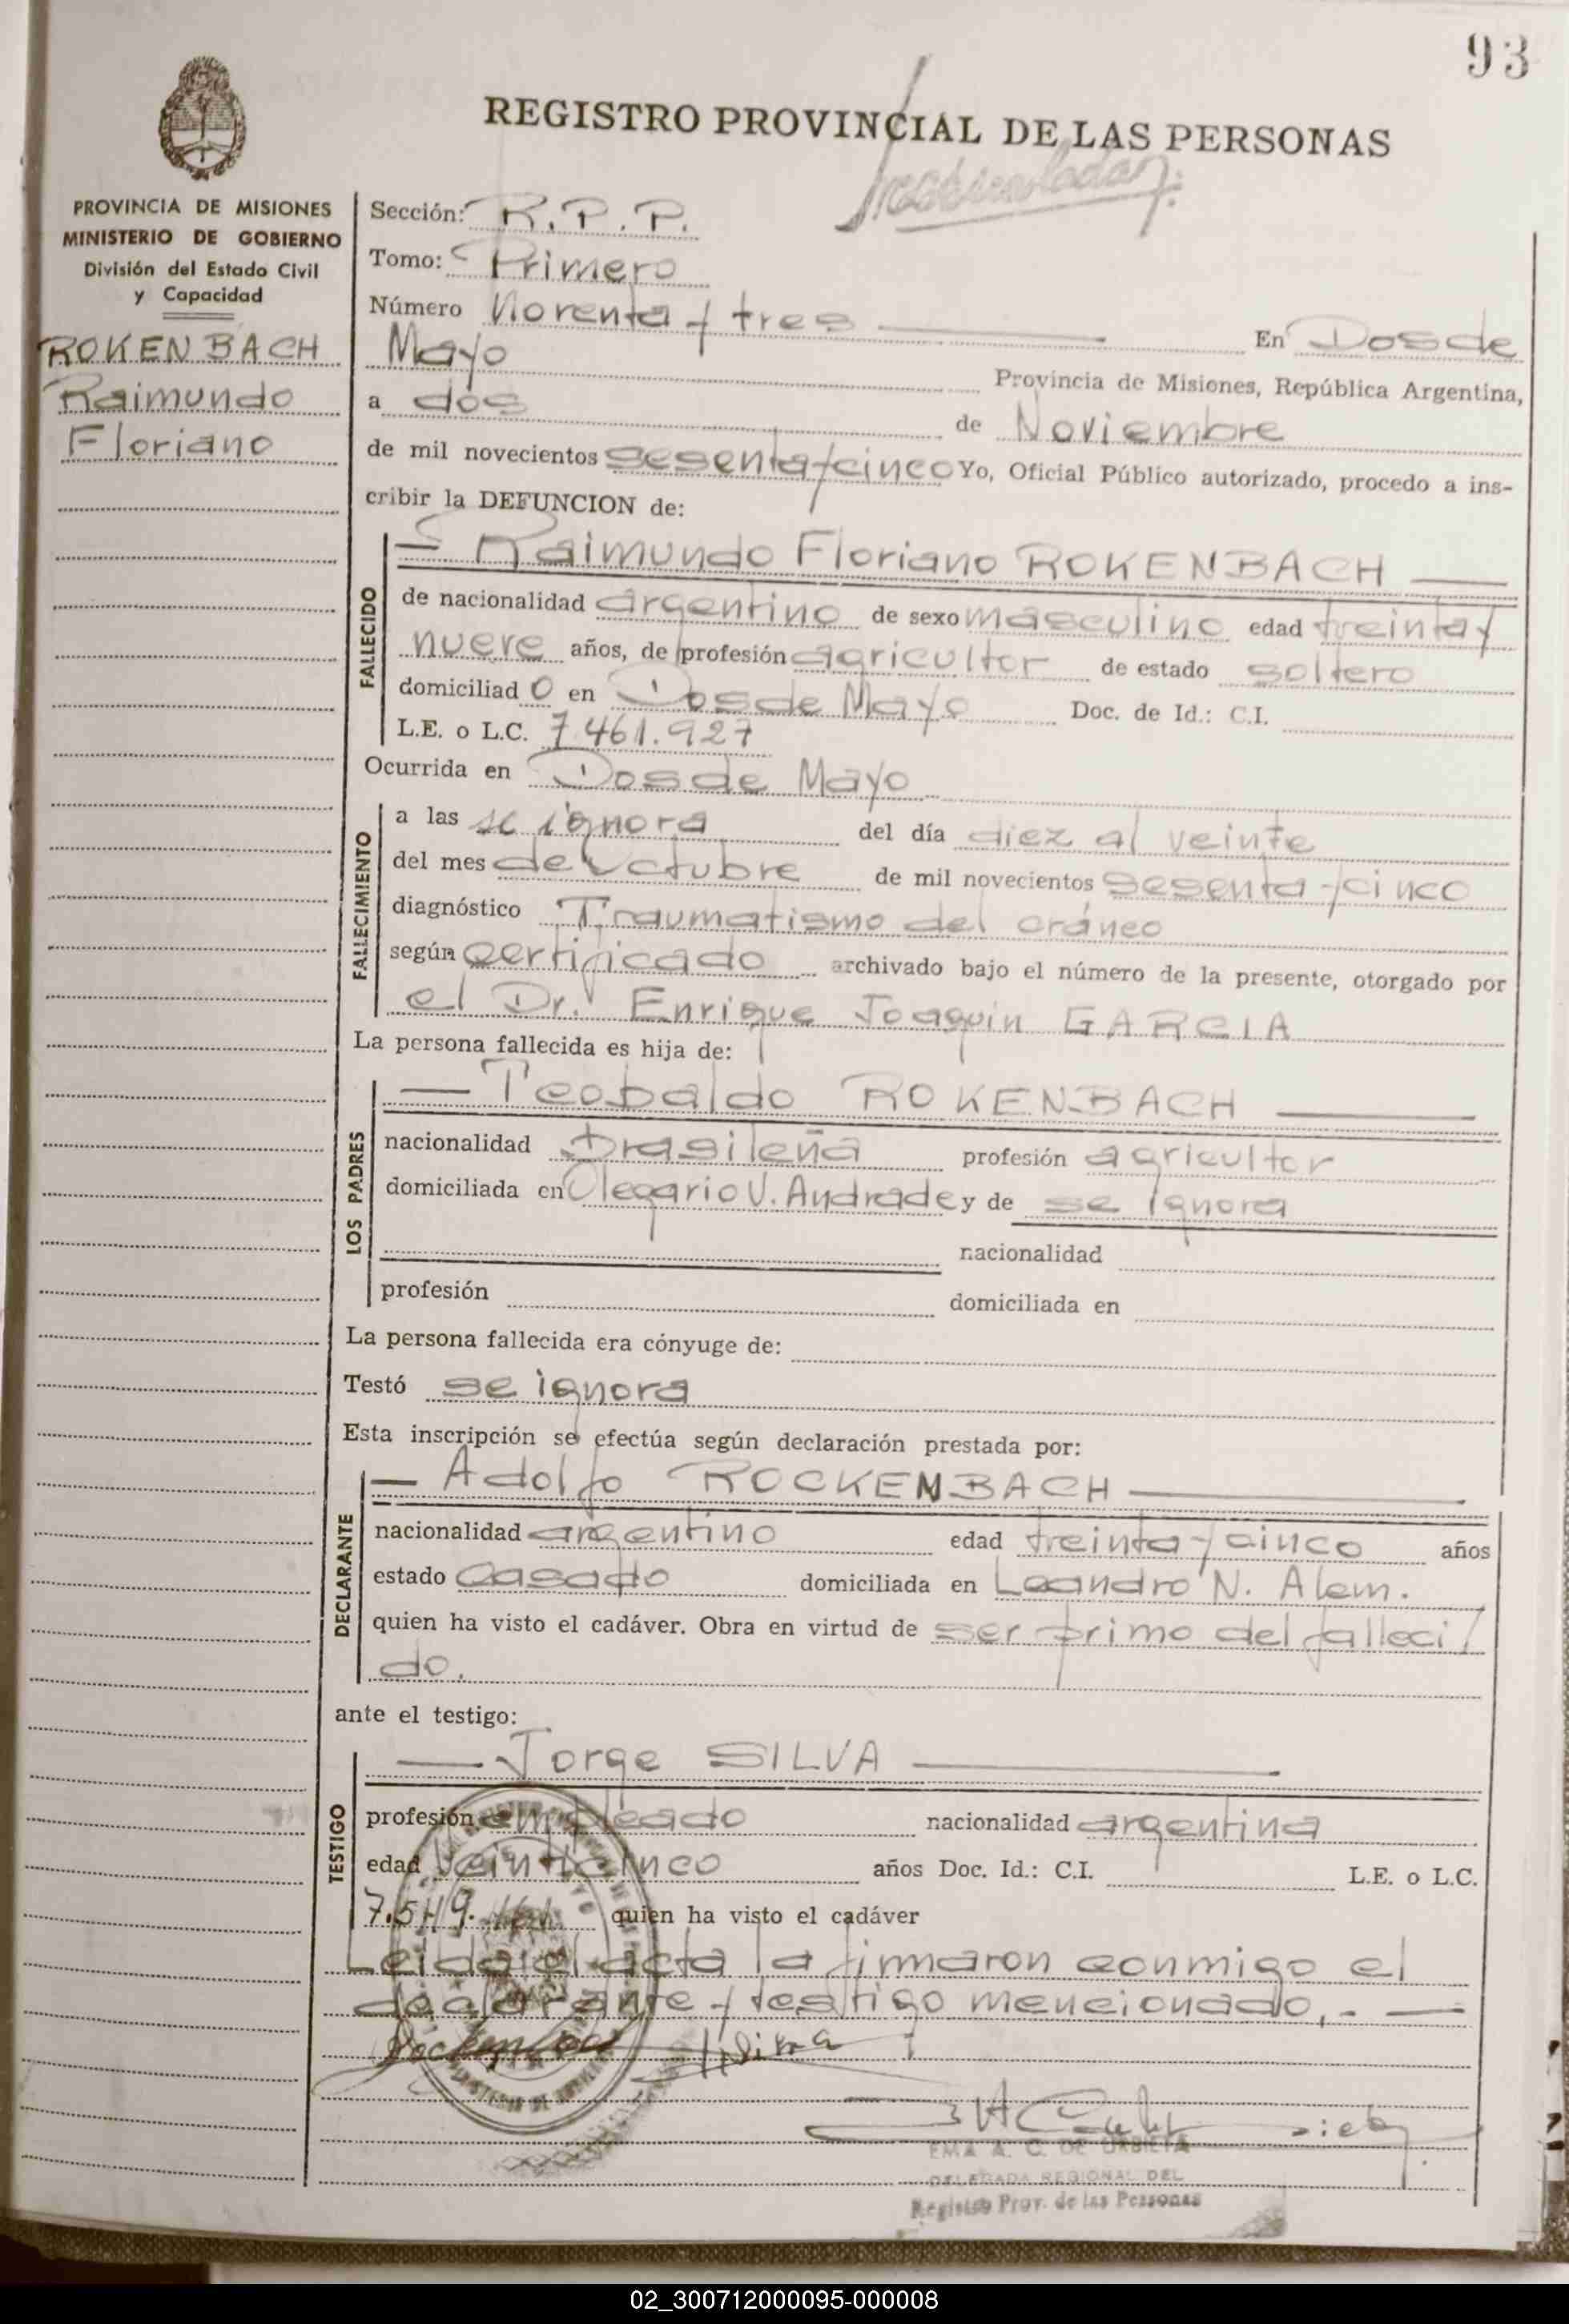 93
REGISTRO PROVINCIAL DE LAS PERSONAS
PROVINCIA DE MISIONES
MINISTERIO DE GOBIERNO
División del Estado Civil
y Capacidad
ROKENBACH
Raimundo
Floriano
Sección: R.P.P.
Tomo: Primero
Número Noventa y tres En Dos de
Mayo Provincia de Misiones, República Argentina,
a dos de Noviembre
de mil novecientos sesenta y cinco Yo, Oficial Público autorizado, procedo a ins-
cribir la DEFUNCION de:
FALLECIDO
— Raimundo Floriano ROKENBACH —
de nacionalidad argentino de sexo masculino edad treinta y
nueve años, de profesión agricultor de estado soltero
domiciliad o en Dos de Mayo Doc. de Id.: C.I.
L.E. o L.C. 7.461.927
Ocurrida en Dos de Mayo
FALLECIMIENTO
a las se ignora del día diez al veinte
del mes de Octubre de mil novecientos sesenta y cinco
diagnóstico Traumatismo del cráneo
según certificado archivado bajo el número de la presente, otorgado por
el Dr. Enrique Joaquin GARCIA
La persona fallecida es hija de:
LOS PADRES
— Teobaldo ROKENBACH —
nacionalidad brasileña profesión agricultor
domiciliada en Olegario V. Andrade y de se ignora
nacionalidad
profesión domiciliada en
La persona fallecida era cónyuge de:
Testó se ignora
Esta inscripción se efectúa según declaración prestada por:
DECLARANTE
— Adolfo ROCKENBACH —
nacionalidad argentino edad treinta y cinco años
estado casado domiciliada en Leandro N. Alem.
quien ha visto el cadáver. Obra en virtud de ser primo del falleci/
do.
ante el testigo:
TESTIGO
— Jorge SILVA —
profesión empleado nacionalidad argentina
edad veinticinco años Doc. Id.: C.I. L.E. o L.C.
quien ha visto el cadáver
Leída el acta la firmaron conmigo el
declarante y testigo mencionado,. —
EMA A. C. DE URBIETA
DELEGADA REGIONAL DEL
Registro Prov. de las Personas
02_300712000095-000008